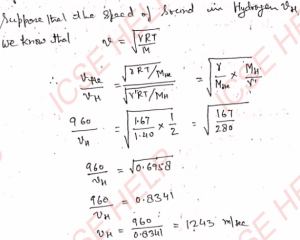 Suppose that the speed of Sound in Hydrogen v_H,
we know that v = √(γRT/M)
∴ v_He/v_H = √(γRT/M_He)/√(γ'RT/M_H) = √(γ/M_He × M_H/γ')
960/v_H = √(1.67/1.40 × 1/2) = √(167/280)
960/v_H = √0.6958
960/v_H = 0.8341
v_H = 960/0.8341 = 1243 m/sec
ICSE HELP